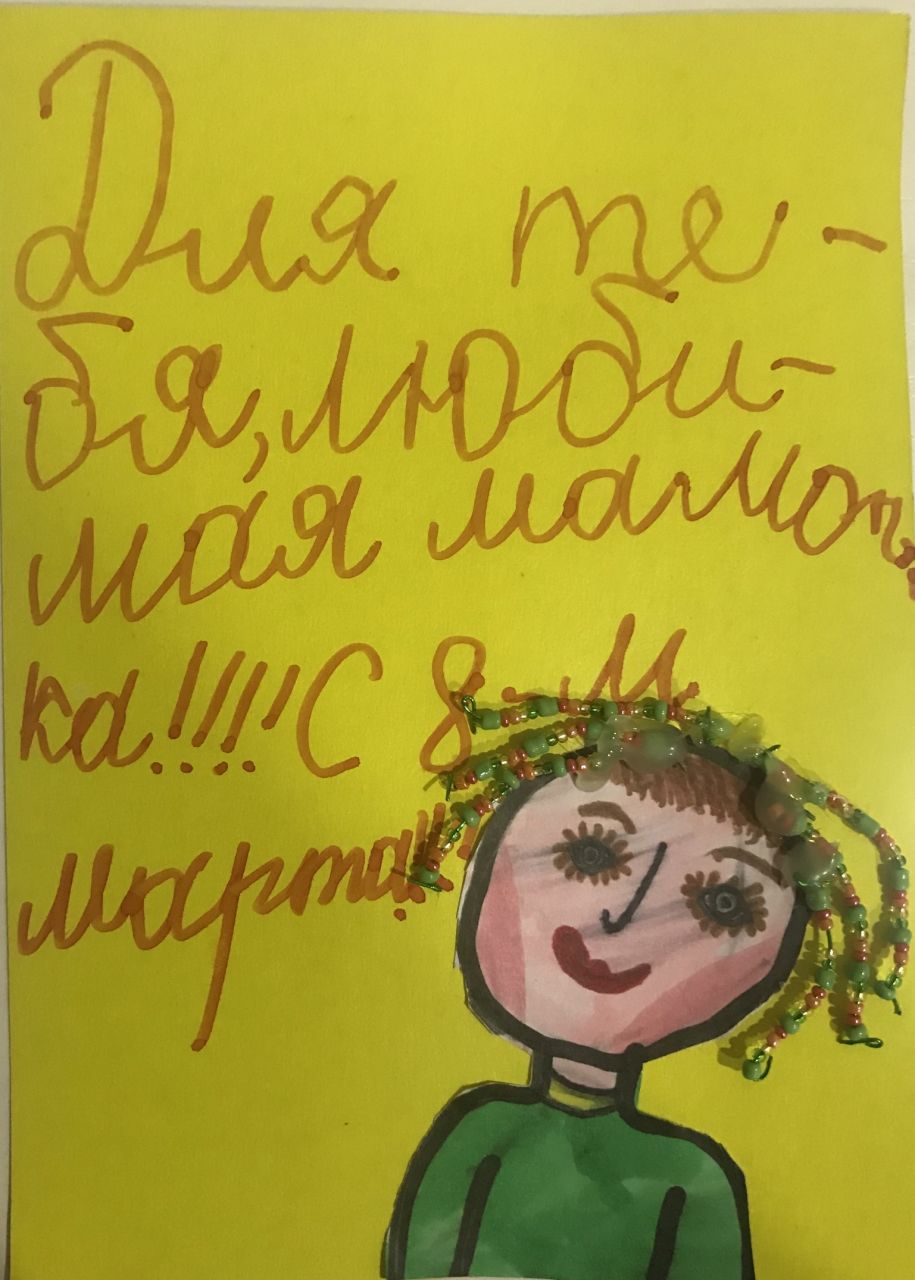 Для те-
бя, люби-
мая мамоч-
ка!!!! С 8-м
марта!!!